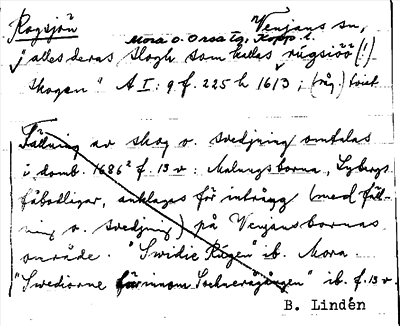 Rogsjön Venjans sn,
Mora o. Orsa tg, Kopp. l.
"j alles deras skogh som kallas rugsiöö (!)
skogen" A I: 9 f. 225 h 1613; (råg)
Fällning av skog o. svedjning omtalas
i domb. 1686² f. 13 v: Malungsborna, Lybergs
fäbodligar, anklagas för intrång (med fäll-
ning o. svedjning) på Venjansbornas
område. "Swidie Rugen" ib. Mora.
"Swediorne för innom Sochneråen" ib. f. 13 v.
B. Lindén